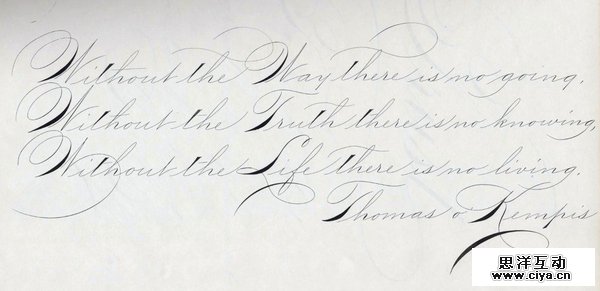 Without the Way there is no going,
Without the Truth there is no knowing,
Without the Life there is no living.
Thomas a' Kempis
思洋互动
www.ciya.cn